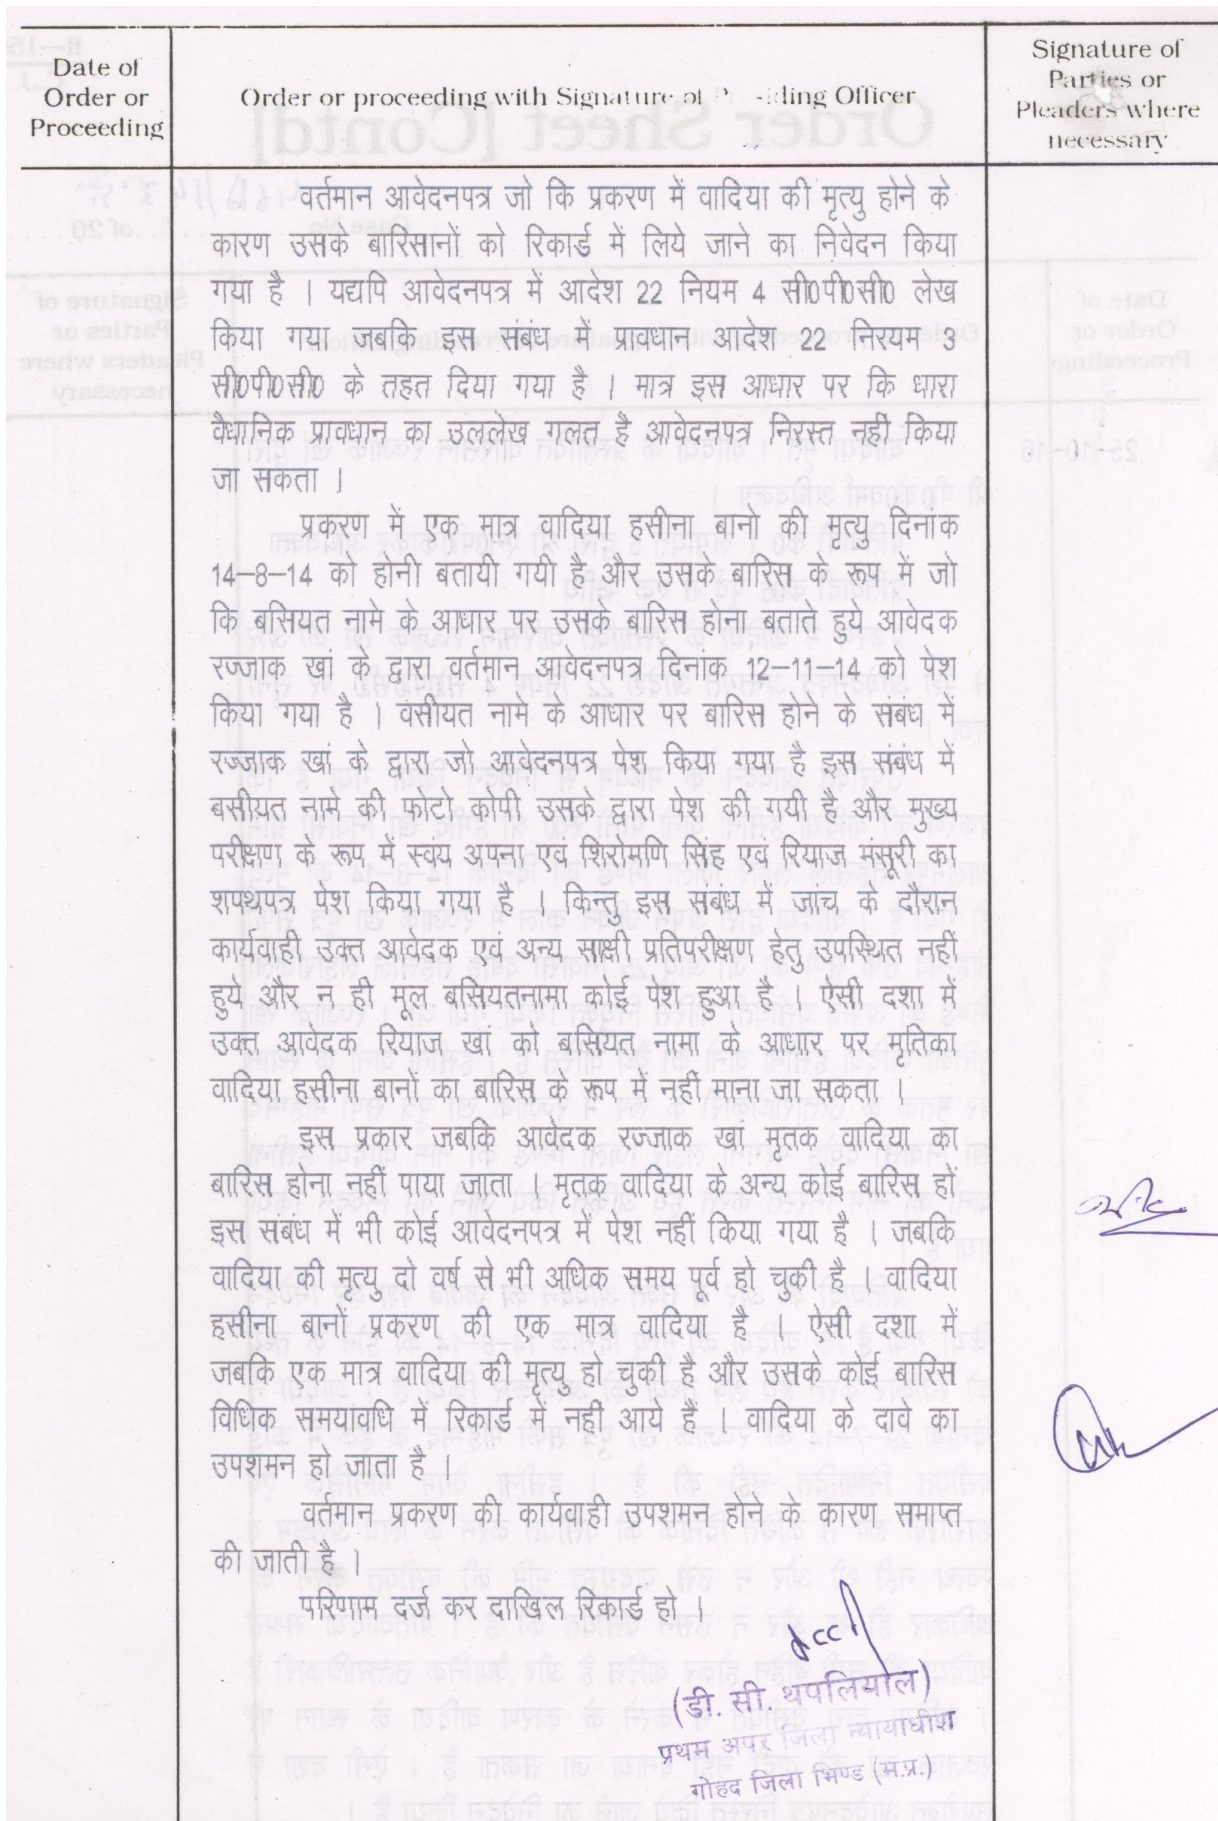 Date of
Order or
Proceeding
Order or proceeding with Signature of Presiding Officer
Signature of
Parties or
Pleaders where
necessary
वर्तमान आवेदनपत्र जो कि प्रकरण में वादिया की मृत्यु होने के
कारण उसके बारिसानों को रिकार्ड में लिये जाने का निवेदन किया
गया है । यद्यपि आवेदनपत्र में आदेश 22 नियम 4 सी0पी0सी0 लेख
किया गया जबकि इस संबंध में प्रावधान आदेश 22 नियम 3
सी0पी0सी0 के तहत दिया गया है । मात्र इस आधार पर कि धारा
वैधानिक प्रावधान का उललेख गलत है आवेदनपत्र निरस्त नहीं किया
जा सकता ।
प्रकरण में एक मात्र वादिया हसीना बानो की मृत्यु दिनांक
14-8-14 को होनी बतायी गयी है और उसके बारिस के रूप में जो
कि बसियत नामे के आधार पर उसके बारिस होना बताते हुये आवेदक
रज्जाक खां के द्वारा वर्तमान आवेदनपत्र दिनाक 12-11-14 को पेश
किया गया है । वसीयत नामे के आधार पर बारिस होने के सबंध में
रज्जाक खां के द्वारा जो आवेदनपत्र पेश किया गया है इस संबंध में
बसीयत नामे की फोटो कोपी उसके द्वारा पेश की गयी है और मुख्य
परीक्षण के रूप में स्वय अपना एवं शिरोमणि सिंह एवं रियाज मंसूरी का
शपथपत्र पेश किया गया है । किन्तु इस सबंध में जाच के दौरान
कार्यवाही उक्त आवेदक एवं अन्य साक्षी प्रतिपरीक्षण हेतु उपस्थित नहीं
हुये और न ही मूल बसियतनामा कोई पेश हुआ है । ऐसी दशा में
उक्त आवेदक रियाज खां को बसियत नामा के आधार पर मृतिका
वादिया हसीना बानों का बारिस के रूप में नहीं माना जा सकता ।
इस प्रकार जबकि आवेदक रज्जाक खां मृतक वादिया का
बारिस होना नहीं पाया जाता । मृतक वादिया के अन्य कोई बारिस हो
इस सबंध में भी कोई आवेदनपत्र में पेश नहीं किया गया है । जबकि
वादिया की मृत्यु दो वर्ष से भी अधिक समय पूर्व हो चुकी है । वादिया
हसीना बानों प्रकरण की एक मात्र वादिया है । ऐसी दशा में
जबकि एक मात्र वादिया की मृत्यु हो चुकी है और उसके कोई बारिस
विधिक समयावधि में रिकार्ड में नहीं आये हैं । वादिया के दावे का
उपशमन हो जाता है ।
वर्तमान प्रकरण की कार्यवाही उपशमन होने के कारण समाप्त
की जाती है ।
परिणाम दर्ज कर दाखिल रिकार्ड हो ।
(डी. सी. थपलियाल)
प्रथम अपर जिला न्यायाधीश
गोहद जिला भिण्ड (म.प्र.)